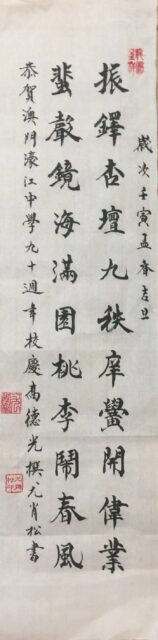 歲次壬寅孟春吉旦
振鐸杏壇九秩庠黌開偉業
蜚聲鏡海滿園桃李鬧春風
恭賀澳門濠江中學九十週年校慶高德光撰尤肖松書